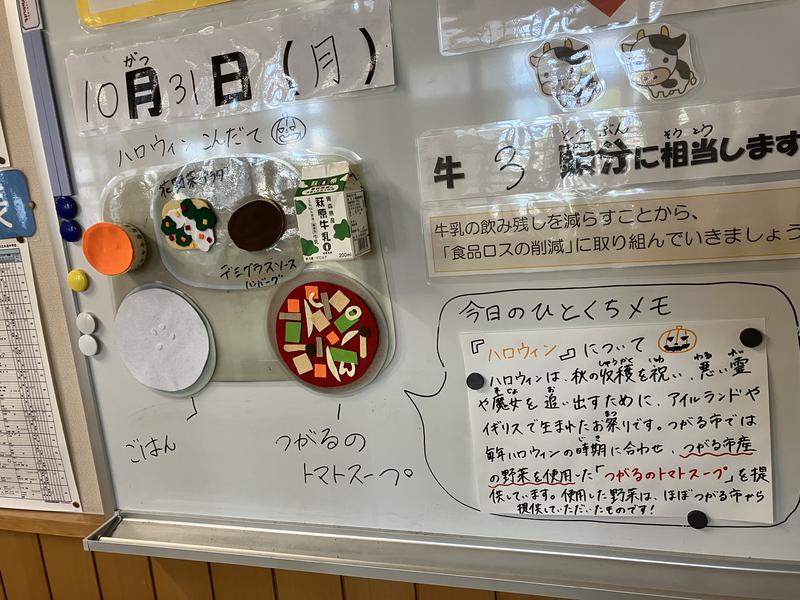 10月31日(月)
がつ
ハロウィンこんだて
花野菜サラダ
デミグラスソース
ハンバーグ
青森県産
萩原牛乳
200ml
ごはん
つがるの
トマトスープ
牛 3 分に相当します
牛乳の飲み残しを減らすことから、
「食品ロスの削減」に取り組んでいきましょう
今日のひとくちメモ
『ハロウィン』について
ハロウィンは、秋の収穫を祝い、悪い霊
や魔女を追い出すために、アイルランドや
イギリスで生まれたお祭りです。つがる市では
毎年ハロウィンの時期に合わせ、つがる市産
の野菜を使用した「つがるのトマトスープ」を提
供しています。使用した野菜は、ほぼつがる市から
提供していただいたものです!